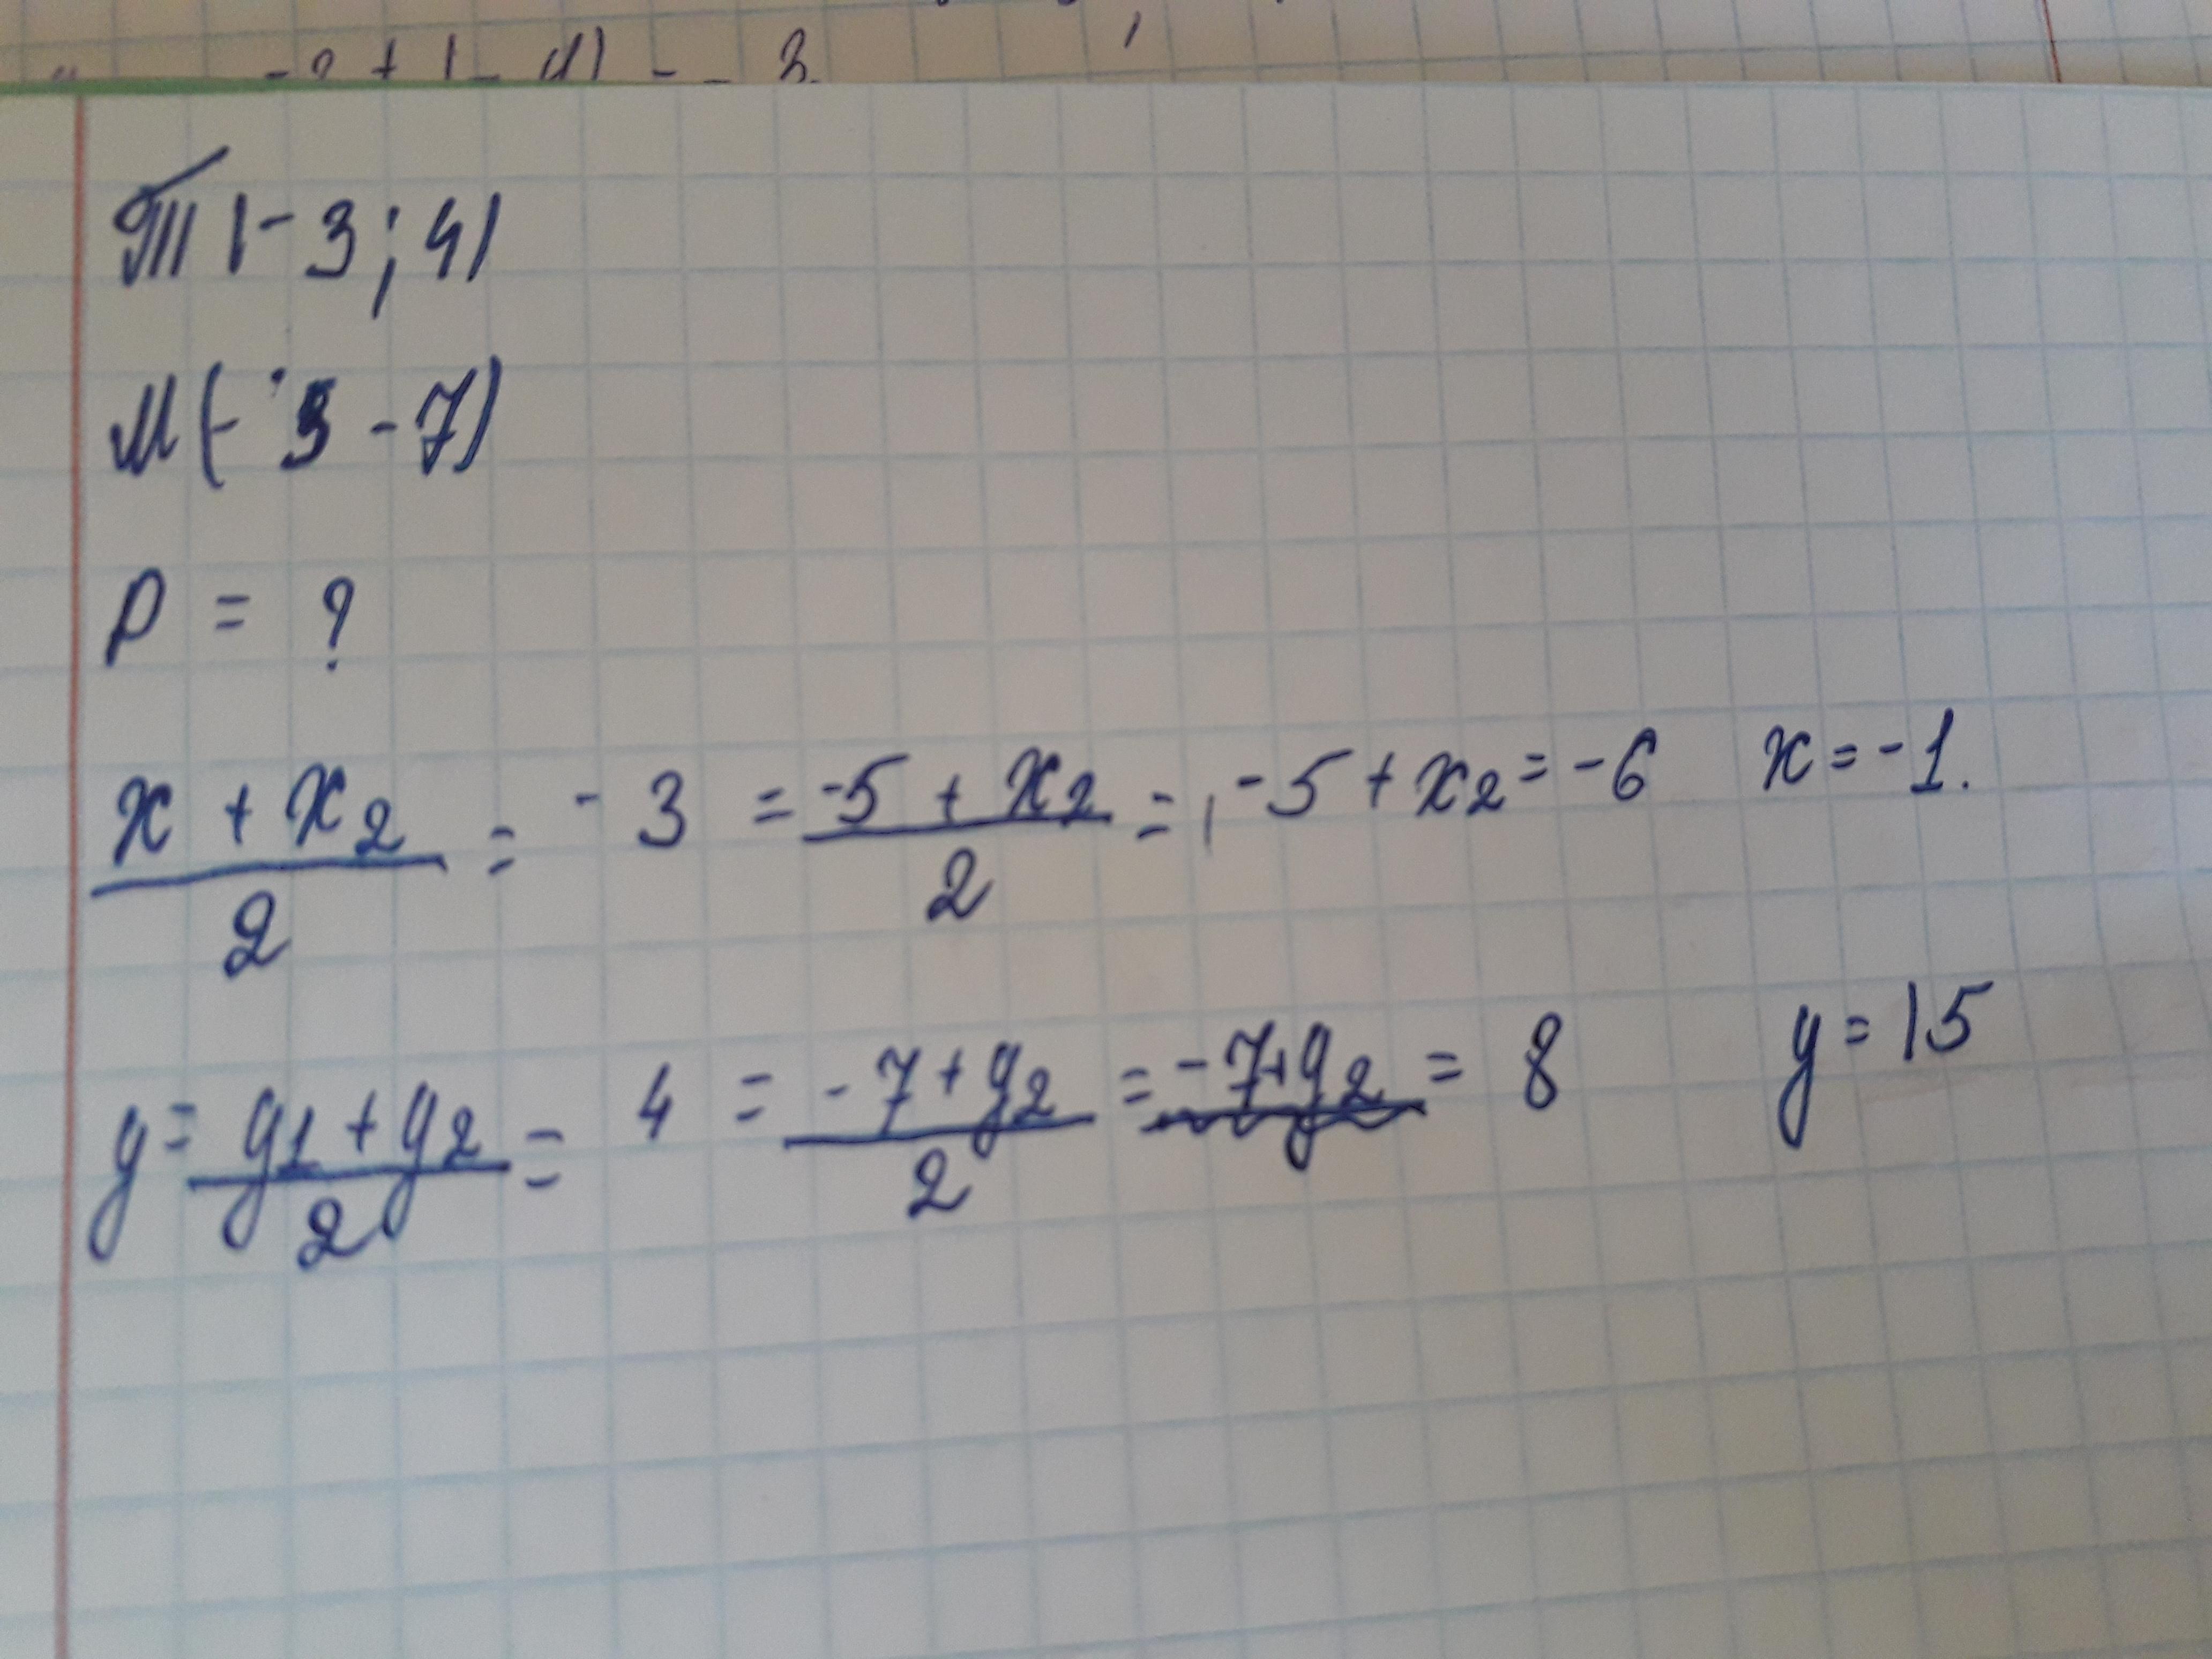 -2 + 1 - 4) - - 3
Т (-3; 4)
М (- 5 - 7)
P = ?
x + x2 / 2 = - 3 = -5 + x2 / 2 = , -5 + x2 = -6 x = -1.
y = y1 + y2 / 2 = 4 = -7 + y2 / 2 = -7 + y2 = 8 y = 15